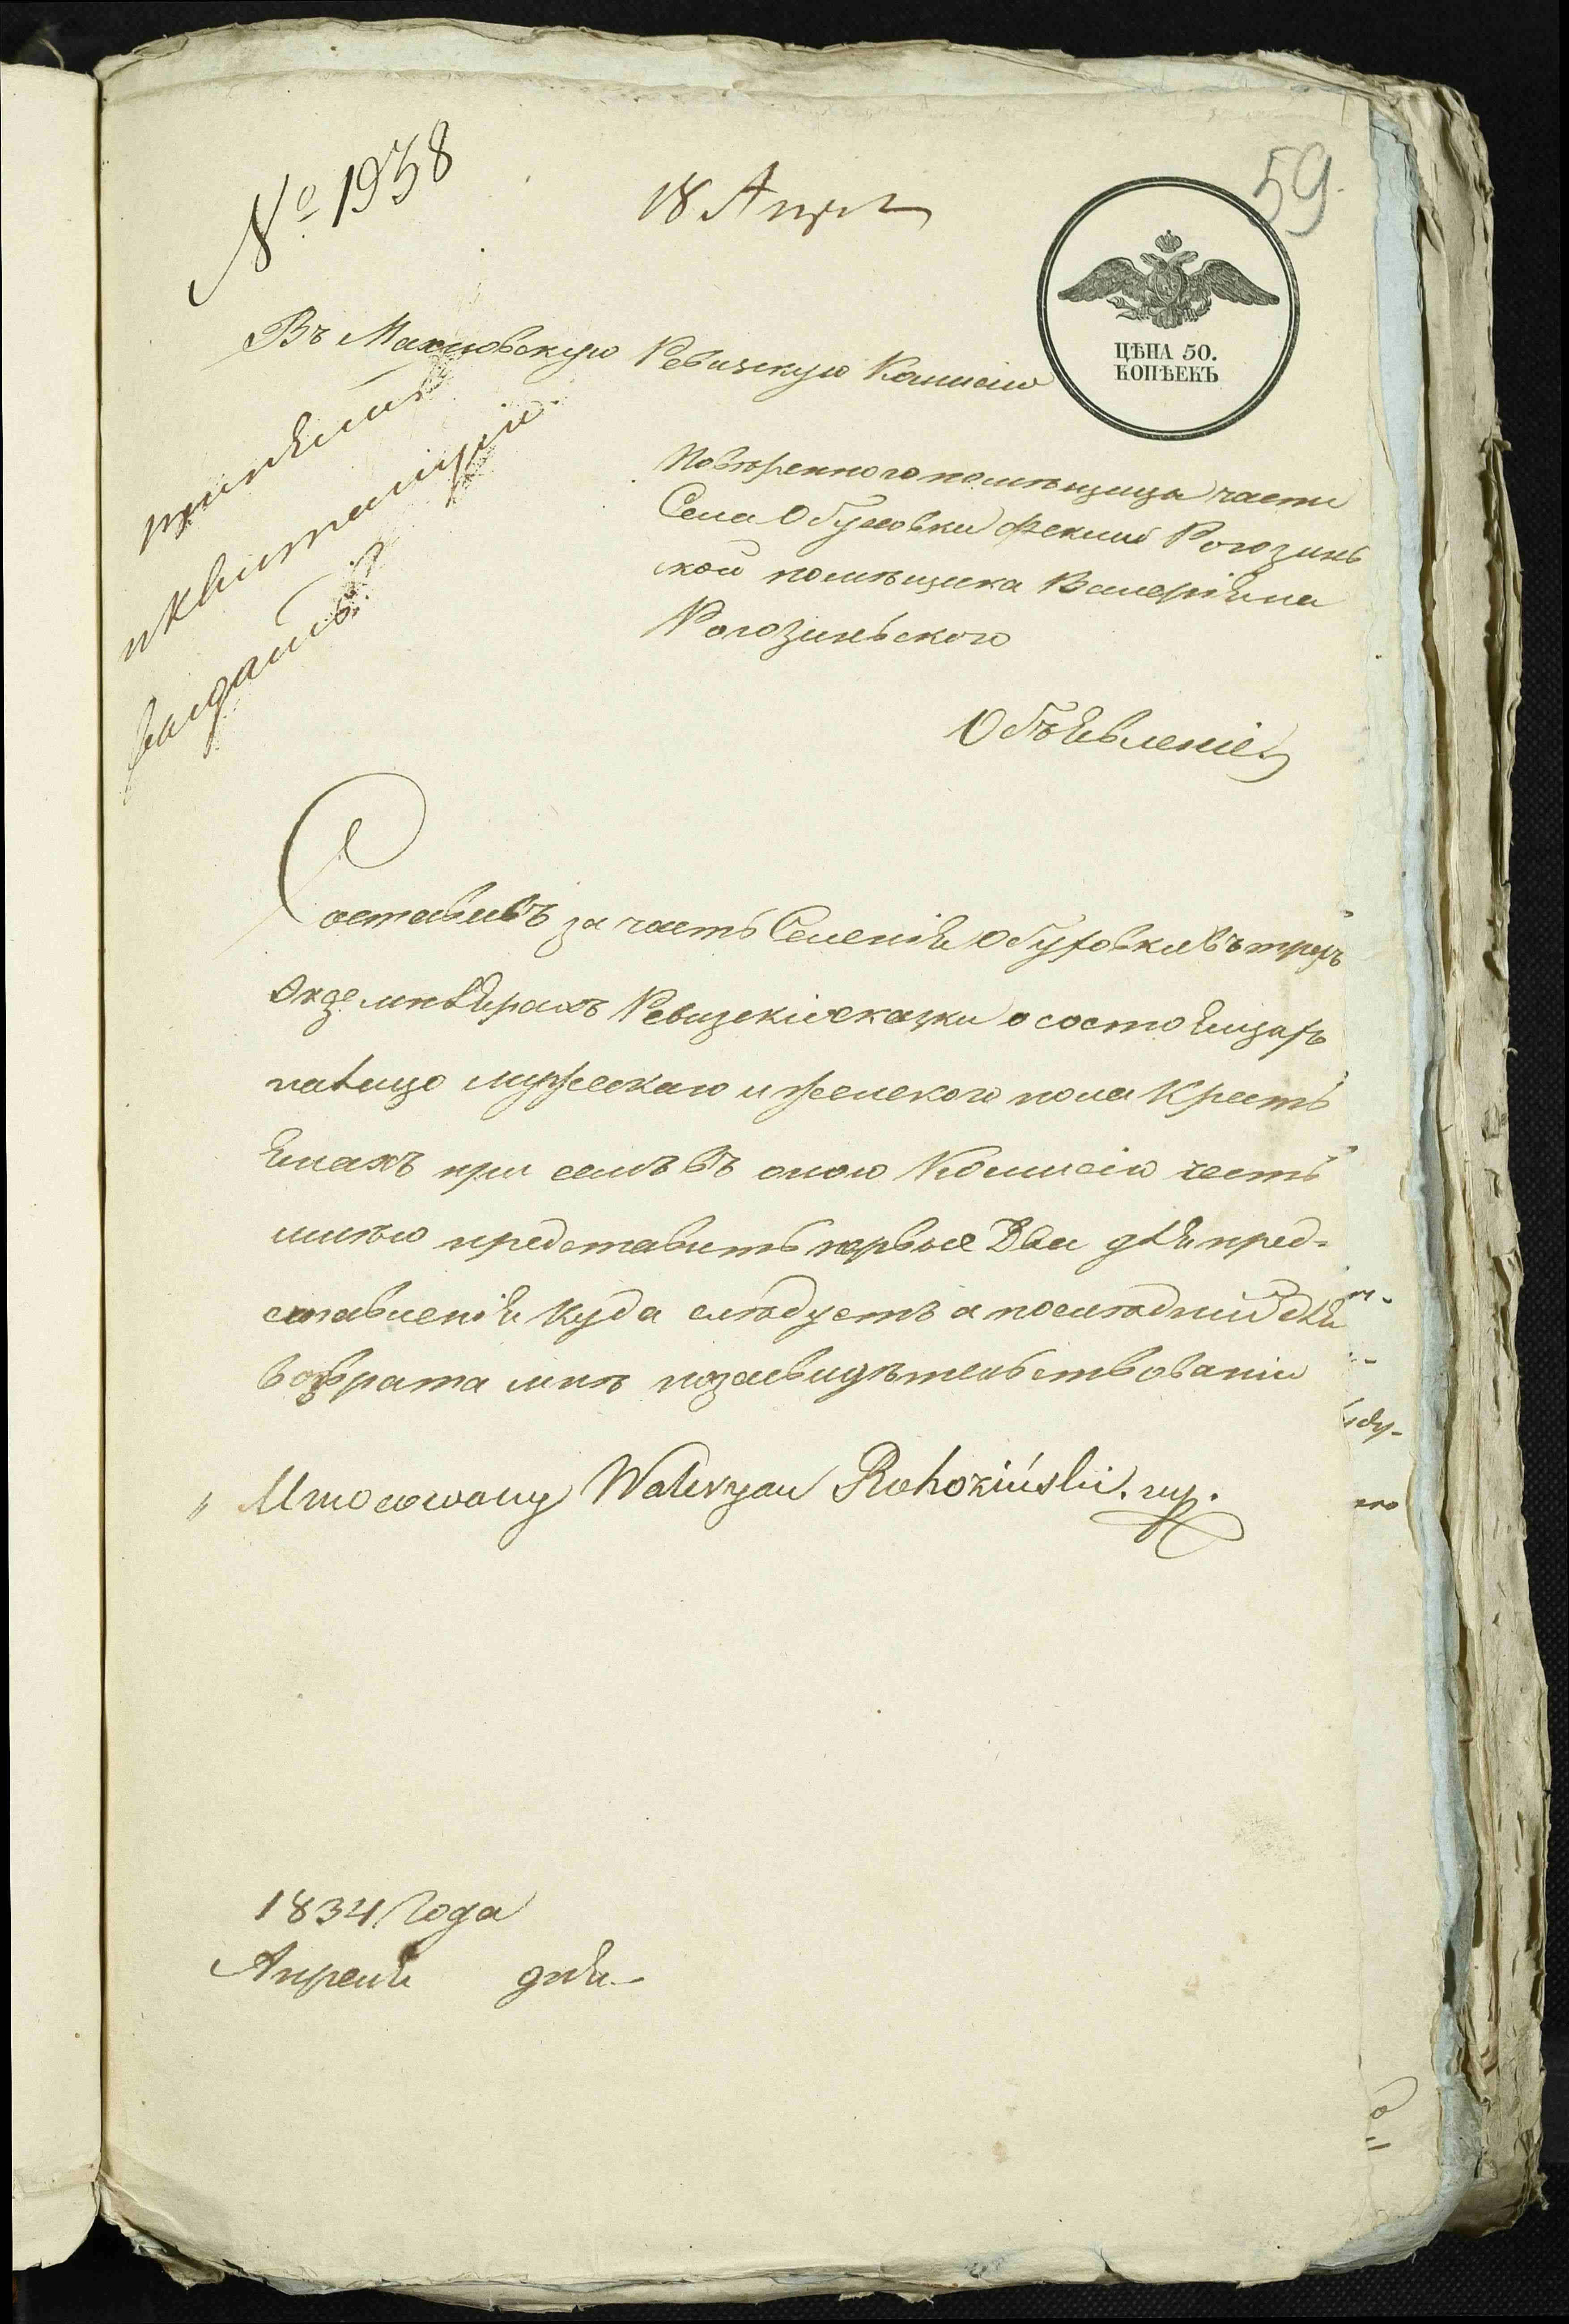 59
№ 1938
18 Апрл
ЦѢНА 50.
КОПѢЕКЪ
Въ Махновскую Ревизкую Комисію
принять
и квитанцію
выдать
Повѣренного помѣщицы части
Села Обуховки Феклы Рогозинь
ской помѣщика Валеріяна
Рогозиньского
Объявленіе
Составивъ за часть Селенія Обуховки въ трехъ
Экземплярахъ Ревизскіе сказки о состоящихъ
налицо мужескаго и женского пола Кресть
янахъ при семъ въ оную Комисію честь
имѣю представить первые Два для пред-
ставленія куда слѣдуетъ а послѣдній для
возврата мнѣ по засвидѣтельствованіи
Umocowany Waleryan Rohoziński. mp.
1834 Года
Апреля дня